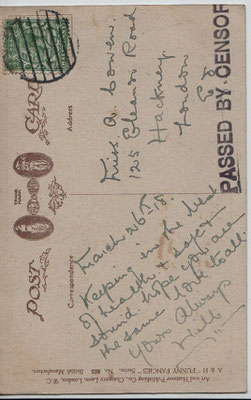 POST CARD
Address
PASSED BY CENSOR
Miss A. Cowen.
125 Eleanor Road
Hackney.
London
March 26th 18.
Keeping in the best
of health & safe &
sound hope you are
the same love to all.
Yours Always
Will
A & H "FUNNY FANCIES" Series. No. 665 British Manufacture.
Art and Humour Publishing Co., Chancery Lane, London, W.C.